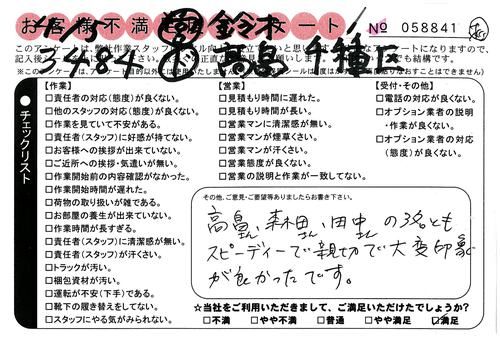 お客様不満
ート!
№ 058841
4/15 営 鈴木
3484 高畠 千種区
【作業】
□責任者の対応(態度)が良くない。
□他のスタッフの対応(態度)が良くない。
□作業を見ていて不安がある。
□責任者(スタッフ)に好感が持てない。
□お客様への挨拶が出来ていない。
□ご近所への挨拶・気遣いが無い。
□作業開始前の内容確認がなかった。
□作業開始時間が遅れた。
□荷物の取り扱いが雑である。
□お部屋の養生が出来ていない。
□作業時間が長すぎる。
□責任者(スタッフ)に清潔感が無い。
□責任者(スタッフ)が汗くさい。
□トラックが汚い。
□梱包資材が汚い。
□運転が不安(下手)である。
□靴下の履き替えをしてない。
□スタッフにやる気がみられない。
【営業】
□見積もり時間に遅れた。
□見積もり時間が長い。
□営業マンに清潔感が無い。
□営業マンが煙草くさい。
□営業マンが汗くさい。
□営業態度が良くない。
□営業の説明と作業が一致してない。
【受付・その他】
□電話の対応が良くない。
□オプション業者の説明
・作業が良くない。
□オプション業者の対応
(態度)が良くない。
●チェックリスト
その他、ご意見・ご要望等ありましたらお書き下さい。
高畠さん、森田さん、田中さんの3名とも
スピーディーで親切で大変印象
が良かったです。
☆当社をご利用いただきまして、ご満足いただけたでしょうか?
□不満 □やや不満 □普通 □やや満足 ☑満足